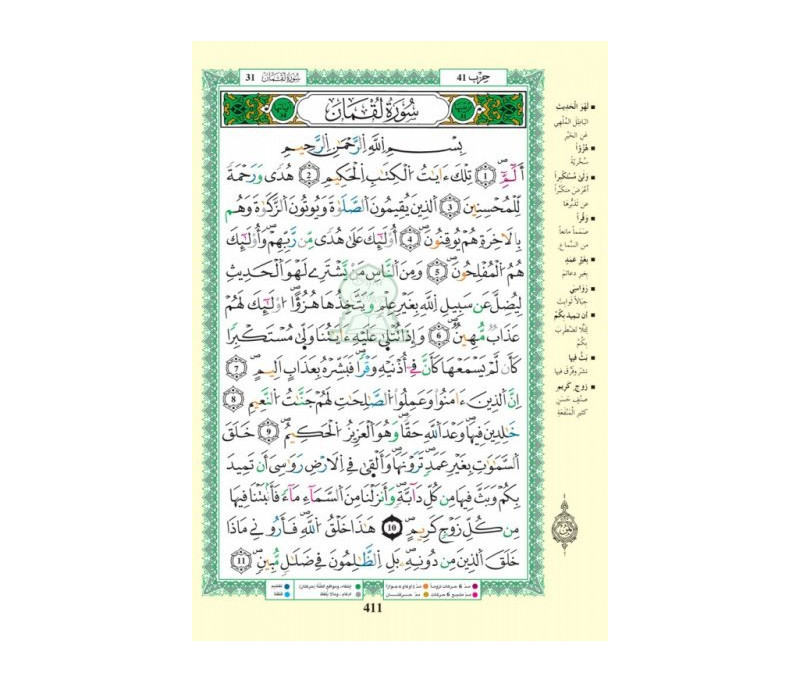 حِزْب 41
سُورَةُ لُقْمَان 31
سُورَةُ لُقْمَان
بِسْمِ اِ۬للَّهِ اِ۬لرَّحْمَٰنِ اِ۬لرَّحِيمِ
أَلَٓمِّٓۖ 1 تِلْكَ ءَايَٰتُ اُ۬لْكِتَٰبِ اِ۬لْحَكِيمِۖ 2 هُدىٗ وَرَحْمَةٗ
لِّلْمُحْسِنِينَۖ 3 اَ۬لذِينَ يُقِيمُونَ اَ۬لصَّلَوٰةَ وَيُوتُونَ اَ۬لزَّكَوٰةَ وَهُم
بِالَاخِرَةِ هُمْ يُوقِنُونَۖ 4 أُوْلَٰٓئِكَ عَلَىٰ هُدىٗ مِّن رَّبِّهِمْۖ وَأُوْلَٰٓئِكَ
هُمُ اُ۬لْمُفْلِحُونَۖ 5 وَمِنَ اَ۬لنَّاسِ مَنْ يَّشْتَرِے لَهْوَ اَ۬لْحَدِيثِ
لِيُضِلَّ عَن سَبِيلِ اِ۬للَّهِ بِغَيْرِ عِلْمٖ وَيَتَّخِذُهَا هُزُؤاًۖ اُوْلَٰٓئِكَ لَهُمْ
عَذَابٞ مُّهِينٞۖ 6 وَإِذَا تُتْلَىٰ عَلَيْهِ ءَايَٰتُنَا وَلَّىٰ مُسْتَكْبِراٗ
كَأَن لَّمْ يَسْمَعْهَا كَأَنَّ فِےٓ أُذْنَيْهِ وَقْراٗۖ فَبَشِّرْهُ بِعَذَابٍ اَلِيمٍۖ 7
اِنَّ اَ۬لذِينَ ءَامَنُواْ وَعَمِلُواْ اُ۬لصَّٰلِحَٰتِ لَهُمْ جَنَّٰتُ اُ۬لنَّعِيمِ 8
خَٰلِدِينَ فِيهَاۖ وَعْدَ اَ۬للَّهِ حَقّاٗۖ وَهُوَ اَ۬لْعَزِيزُ اُ۬لْحَكِيمُۖ 9 خَلَقَ
اَ۬لسَّمَٰوَٰتِ بِغَيْرِ عَمَدٖ تَرَوْنَهَاۖ وَأَلْقَىٰ فِے اِ۬لَارْضِ رَوَٰسِيَ أَن تَمِيدَ
بِكُمْ وَبَثَّ فِيهَا مِن كُلِّ دَآبَّةٖۖ وَأَنزَلْنَا مِنَ اَ۬لسَّمَآءِ مَآءٗ فَأَنۢبَتْنَا فِيهَا
مِن كُلِّ زَوْجٖ كَرِيمٍۖ 10 هَٰذَا خَلْقُ اُ۬للَّهِۖ فَأَرُونِے مَاذَا
خَلَقَ اَ۬لذِينَ مِن دُونِهِۦۖ بَلِ اِ۬لظَّٰلِمُونَ فِے ضَلَٰلٖ مُّبِينٖۖ 11
لَهْوَ الْحَدِيثِ
الباطل المُلْهِي
عن الخَيْرِ
هُزُؤاً
سُخْرِيَّةً
وَلَّىٰ مُسْتَكْبِراً
أعْرَضَ متكبّراً
عن تَدَبُّرِهَا
وَقْراً
صَمَماً مانعاً
من السَّماع
بِغَيْرِ عَمَدٍ
بغير دعائم
رَوَاسِيَ
جِبَالاً ثوابِتَ
أن تَمِيدَ بِكُمْ
لِئَلَّا تَضْطَرِبَ
بِكُمْ
بَثَّ فِيهَا
نشرَ وفَرَّقَ فيها
زَوْجٍ كَرِيمٍ
صِنْفٍ حَسَنٍ
كثيرِ المَنْفَعَةِ
ثمن
مدّ 6 حركات لزوماً
مدّ مشبع 6 حركات
مدّ حركتان
إخفاء، ومواقع الغنّة (حركتان)
إدغام، وما لا يُلفظ
تفخيم
قلقلة
411